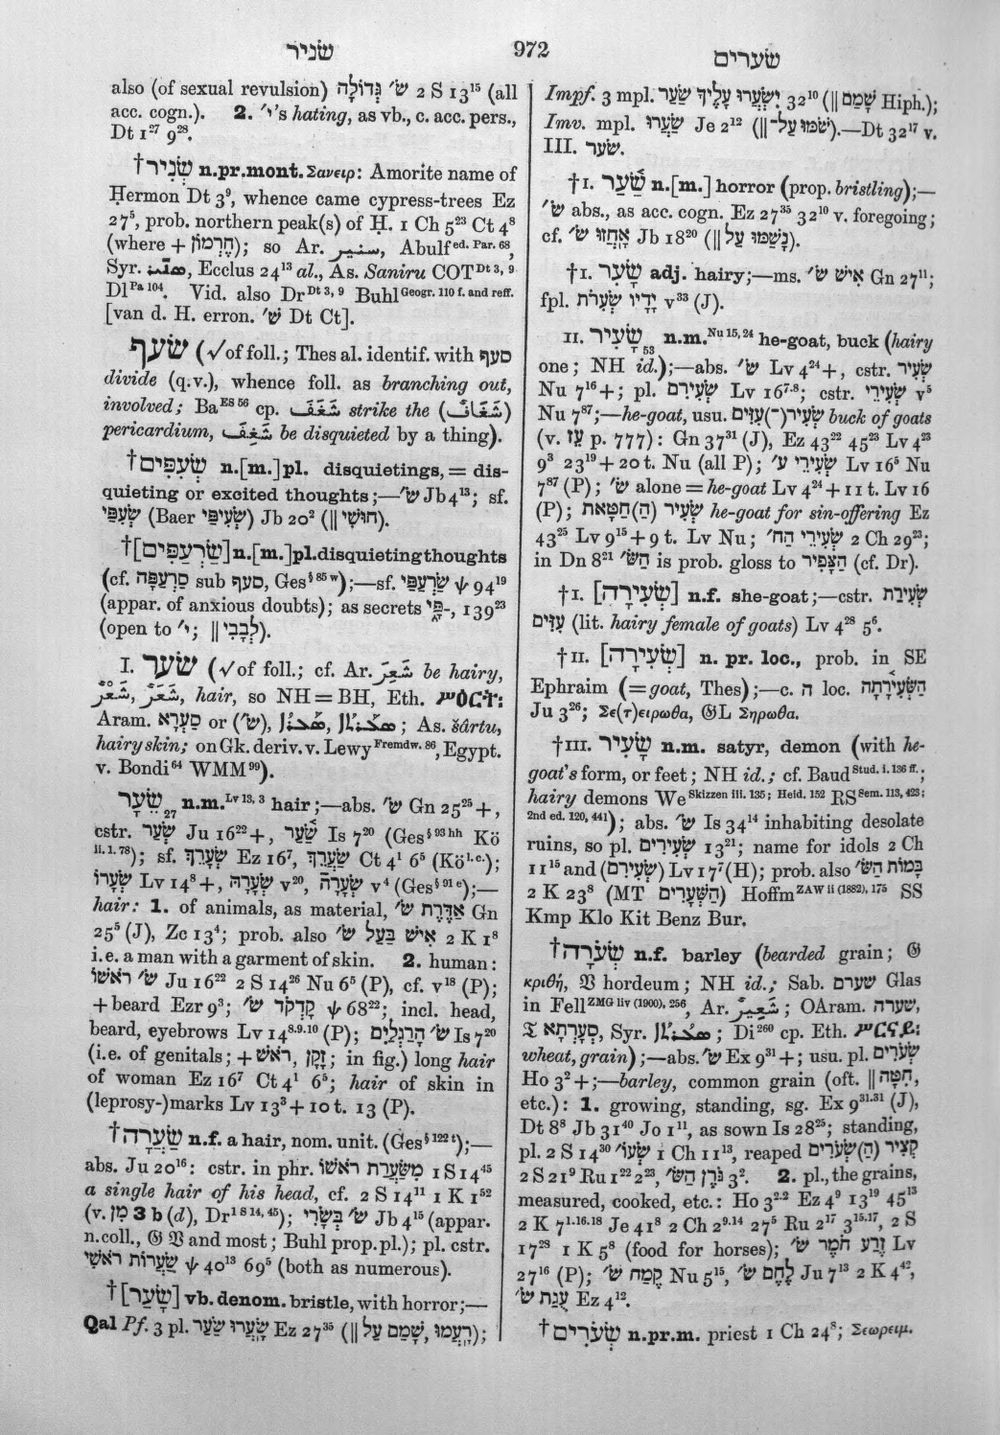 שׂניר
972
שׂערים
also (of sexual revulsion) שׂ׳ גְּדוֹלָה 2 S 13¹⁵ (all
acc. cogn.). 2. י׳'s hating, as vb., c. acc. pers.,
Dt 1²⁷ 9²⁸.
†שְׂנִיר n.pr.mont. Σανειρ: Amorite name of
Ḥermon Dt 3⁹, whence came cypress-trees Ez
27⁵, prob. northern peak(s) of Ḥ. 1 Ch 5²³ Ct 4⁸
(where + חֶרְמוֹן); so Ar. سنير, Abulf ed. Par. 68,
Syr. Ecclus 24¹³ al., As. Saniru COT Dt 3, 9
Dl Pa 104. Vid. also Dr Dt 3, 9 Buhl Geogr. 110 f. and reff.
[van d. H. erron. שׁ׳ Dt Ct].
שׂעף (√of foll.; Thes al. identif. with סעף
divide (q.v.), whence foll. as branching out,
involved; Ba ES 56 cp. شَغَفَ strike the (شَغَافٌ)
pericardium, شَغِفَ be disquieted by a thing).
†שְׂעִפִּים n.[m.]pl. disquietings, = dis-
quieting or excited thoughts;—שׂ׳ Jb 4¹³; sf.
שְׂעִפַּי (Baer שְׂעִיפַּי) Jb 20² (‖ חוּשִׁי).
†[שַׂרְעַפִּים] n.[m.]pl. disquieting thoughts
(cf. סַרְעַפָּה sub סעף, Ges §85 w);—sf. שַׂרְעַפַּי ψ 94¹⁹
(appar. of anxious doubts); as secrets ־פָּי, 139²³
(open to י׳; ‖ לְבָבִי).
I. שׂער (√of foll.; cf. Ar. شَعِرَ be hairy,
شَعْرٌ, شَعَرٌ, hair, so NH=BH, Eth. ሥዕርት:
Aram. סַעְרָא or (שׂ׳), As. šârtu,
hairy skin; on Gk. deriv. v. Lewy Fremdw. 86, Egypt.
v. Bondi 64 WMM 99).
שֵׂעָר 27 n.m. Lv 13, 3 hair;—abs. שׂ׳ Gn 25²⁵ +,
cstr. שְׂעַר Ju 16²² +, שַׂעַר Is 7²⁰ (Ges §93 hh Kö
ii. 1. 78); sf. שְׂעָרֵךְ Ez 16⁷, שַׂעְרֵךְ Ct 4¹ 6⁵ (Kö l.c.);
שְׂעָרוֹ Lv 14⁸ +, שְׂעָרָהּ v²⁰, שְׂעָרָהֿ v⁴ (Ges §91 e);—
hair: 1. of animals, as material, אַדֶּרֶת שׂ׳ Gn
25⁵ (J), Zc 13⁴; prob. also אִישׁ בַּעַל שׂ׳ 2 K 1⁸
i.e. a man with a garment of skin. 2. human:
שׂ׳ ראֹשׁוֹ Ju 16²² 2 S 14²⁶ Nu 6⁵ (P), cf. v¹⁸ (P);
+ beard Ezr 9³; קָדְקֹד שׂ׳ ψ 68²²; incl. head,
beard, eyebrows Lv 14⁸·⁹·¹⁰ (P); שׂ׳ הָרַגְלַיִם Is 7²⁰
(i.e. of genitals; + ראֹשׁ, זָקָן; in fig.) long hair
of woman Ez 16⁷ Ct 4¹ 6⁵; hair of skin in
(leprosy-)marks Lv 13³ + 10 t. 13 (P).
†שַׂעֲרָה n.f. a hair, nom. unit. (Ges §122 t);—
abs. Ju 20¹⁶: cstr. in phr. מִשַּׂעֲרַת ראֹשׁוֹ 1 S 14⁴⁵
a single hair of his head, cf. 2 S 14¹¹ 1 K 1⁵²
(v. מִן 3 b (d), Dr 1 S 14, 45); שׂ׳ בְּשָׂרִי Jb 4¹⁵ (appar.
n.coll., 𝔊 𝔙 and most; Buhl prop. pl.); pl. cstr.
שַׂעֲרוֹת ראֹשִׁי ψ 40¹³ 69⁵ (both as numerous).
†[שָׂעַר] vb. denom. bristle, with horror;—
Qal Pf. 3 pl. שָׂעֲרוּ שַׂעַר Ez 27³⁵ (‖ שָׁמֵם עַל, רָעֲמוּ);
Impf. 3 mpl. יִשְׂעֲרוּ עָלֶיךָ שַׂעַר 32¹⁰ (‖ שָׁמֵם Hiph.);
Imv. mpl. שַׂעֲרוּ Je 2¹² (‖ שֹׁמּוּ עַל־).—Dt 32¹⁷ v.
III. שׂער.
†I. שַׂעַר n.[m.] horror (prop. bristling);—
שׂ׳ abs., as acc. cogn. Ez 27³⁵ 32¹⁰ v. foregoing;
cf. אָחֲזוּ שׂ׳ Jb 18²⁰ (‖ נָשַׁמּוּ עַל).
†I. שָׂעִר adj. hairy;—ms. אִישׁ שׂ׳ Gn 27¹¹;
fpl. יָדָיו שְׂעִרֹת v³³ (J).
II. שָׂעִיר 53 n.m. Nu 15, 24 he-goat, buck (hairy
one; NH id.);—abs. שׂ׳ Lv 4²⁴ +, cstr. שְׂעִיר
Nu 7¹⁶ +; pl. שְׂעִירִם Lv 16⁷·⁸; cstr. שְׂעִירֵי v⁵
Nu 7⁸⁷;—he-goat, usu. שְׂעִיר(־)עִזִּים buck of goats
(v. עֵז p. 777): Gn 37³¹ (J), Ez 43²² 45²³ Lv 4²³
9³ 23¹⁹ + 20 t. Nu (all P); שְׂעִירֵי ע׳ Lv 16⁵ Nu
7⁸⁷ (P); שׂ׳ alone = he-goat Lv 4²⁴ + 11 t. Lv 16
(P); שְׂעִיר (הַ)חַטָּאת he-goat for sin-offering Ez
43²⁵ Lv 9¹⁵ + 9 t. Lv Nu; שְׂעִירֵי הַח׳ 2 Ch 29²³;
in Dn 8²¹ הַשּׂ׳ is prob. gloss to הַצָּפִיר (cf. Dr).
†I. [שְׂעִירָה] n.f. she-goat;—cstr. שְׂעִירַת
עִזִּים (lit. hairy female of goats) Lv 4²⁸ 5⁶.
†II. [שְׂעִירָה] n. pr. loc., prob. in SE
Ephraim (= goat, Thes);—c. ה loc. הַשְּׂעִירָתָה
Ju 3²⁶; Σε(τ)ειρωθα, 𝔊L Σηρωθα.
†III. שָׂעִיר n.m. satyr, demon (with he-
goat's form, or feet; NH id.; cf. Baud Stud. i. 136 ff.;
hairy demons We Skizzen iii. 135; Heid. 152 RS Sem. 113, 423;
2nd ed. 120, 441); abs. שׂ׳ Is 34¹⁴ inhabiting desolate
ruins, so pl. שְׂעִירִים 13²¹; name for idols 2 Ch
11¹⁵ and (שְׂעִירִם) Lv 17⁷ (H); prob. also בָּמוֹת הַשּׂ׳
2 K 23⁸ (MT הַשְּׁעָרִים) Hoffm ZAW ii (1882), 175 SS
Kmp Klo Kit Benz Bur.
†שְׂעֹרָה n.f. barley (bearded grain; 𝔊
κριθή, 𝔙 hordeum; NH id.; Sab. שערם Glas
in Fell ZMG liv (1900), 256, Ar. شَعِيرٌ; OAram. שערה,
𝔗 סְעָרְתָא, Syr. Di 260 cp. Eth.
wheat, grain);—abs. שׂ׳ Ex 9³¹ +; usu. pl. שְׂעֹרִים
Ho 3² +;—barley, common grain (oft. ‖ חִטָּה,
etc.): 1. growing, standing, sg. Ex 9³¹·³¹ (J),
Dt 8⁸ Jb 31⁴⁰ Jo 1¹¹, as sown Is 28²⁵; standing,
pl. 2 S 14³⁰ שְׂעוֹ׳ 1 Ch 11¹³, reaped קְצִיר (הַ)שְּׂעֹרִים
2 S 21⁹ Ru 1²² 2²³, גֹּרֶן הַשּׂ׳ 3². 2. pl., the grains,
measured, cooked, etc.: Ho 3²·² Ez 4⁹ 13¹⁹ 45¹³
2 K 7¹·¹⁶·¹⁸ Je 41⁸ 2 Ch 2⁹·¹⁴ 27⁵ Ru 2¹⁷ 3¹⁵·¹⁷, 2 S
17²⁸ 1 K 5⁸ (food for horses); זֶרַע חֹמֶר שׂ׳ Lv
27¹⁶ (P); קֶמַח שׂ׳ Nu 5¹⁵, לֶחֶם שׂ׳ Ju 7¹³ 2 K 4⁴²,
עֻגַת שׂ׳ Ez 4¹².
†שְׂעֹרִים n.pr.m. priest 1 Ch 24⁸; Σεωρειμ.